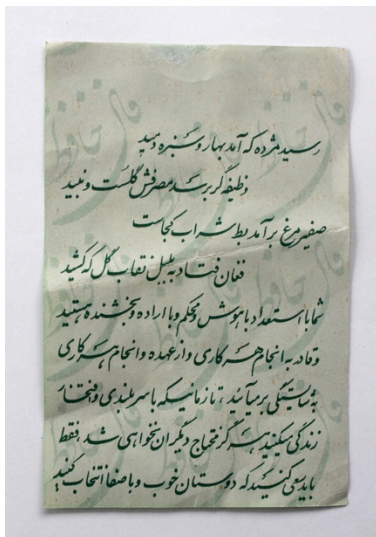 رسید مژده که آمد بهار و سبزه دمید
وظیفه گر برسد مصرفش گلست و نبید
صفیر مرغ برآمد بط شراب کجاست
فغان فتاد به بلبل نقاب گل که کشید
شما با استعداد با هوش و محکم و با اراده و بخشنده هستید
و قادر به انجام هر کاری و از عهده و انجام هر کاری
به شایستگی برمیآئید، تا زمانیکه با سربلندی و افتخار
زندگی میکنید هرگز محتاج دیگران نخواهی شد، فقط
باید سعی کنید که دوستان خوب و با صفا انتخاب کنید